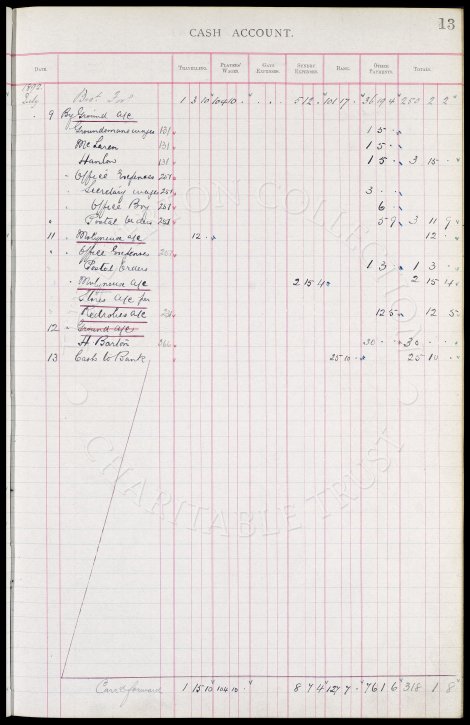 13
CASH ACCOUNT.
DATE. TRAVELLING. PLAYERS' WAGES. GATE EXPENSES. SUNDRY EXPENSES. BANK. OTHER PAYMENTS. TOTALS.
1892
July 1 3 10 104 10 . . . . 5 12 . 101 17 . 36 19 4 250 2 2
9 By Ground a/c
Groundsmans wages 131 1 5 .
McLaren 131 1 5 .
Hanlon 131 1 5 . 3 15 .
Office Expenses 251
Secretary wages 251 3 . .
Office Boy 251 6 .
Postal orders 251 5 9 3 11 9
11 Molyneux a/c 12 . 12 .
Office Expenses 251
Postal Orders 1 3 . 1 3 .
Molyneux a/c 2 15 4 2 15 4
Stores a/c per
Redrobes a/c 12 5 12 5
12 Ground a/c
H Barton 30 . . 30 . .
13 Cash to Bank 25 10 . 25 10 .
Carr'd forward 1 15 10 104 10 . 8 7 4 127 7 . 76 1 6 318 1 8
COLLECTION
CHARITABLE TRUST